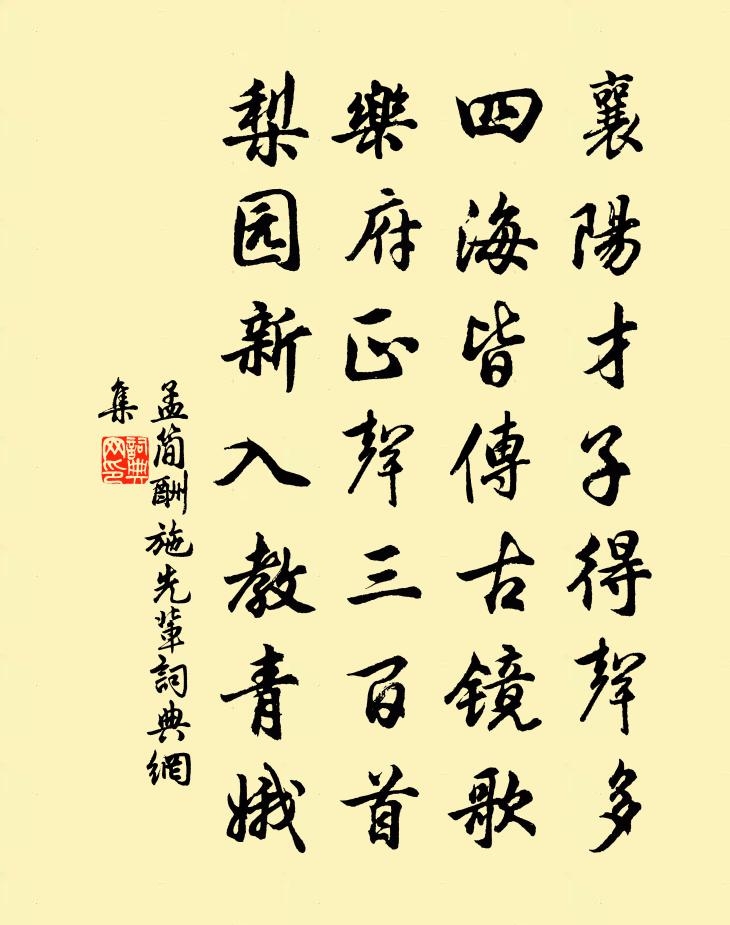 襄陽才子得聲多
四海皆傳古镜歌
樂府正聲三百首
梨园新入教青娥
孟简酬施先輩詞典網
集
詞典
网印